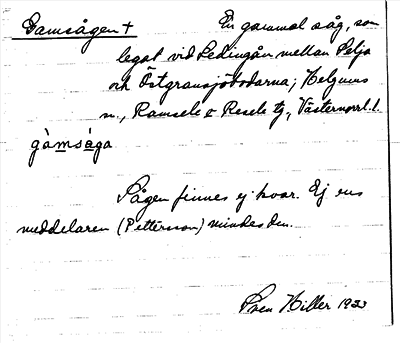 Damsågen + En gammal såg, som
legat vid Ledingån mellan Selsjö
och Östgransjöbodarna; Helgums
sn., Ramsele o Resele tg., Västernorrl. l.
gàmsåga
Sågen finnes ej kvar. Ej ens
meddelaren (Pettersson) mindes den.
Sven Hiller 1933